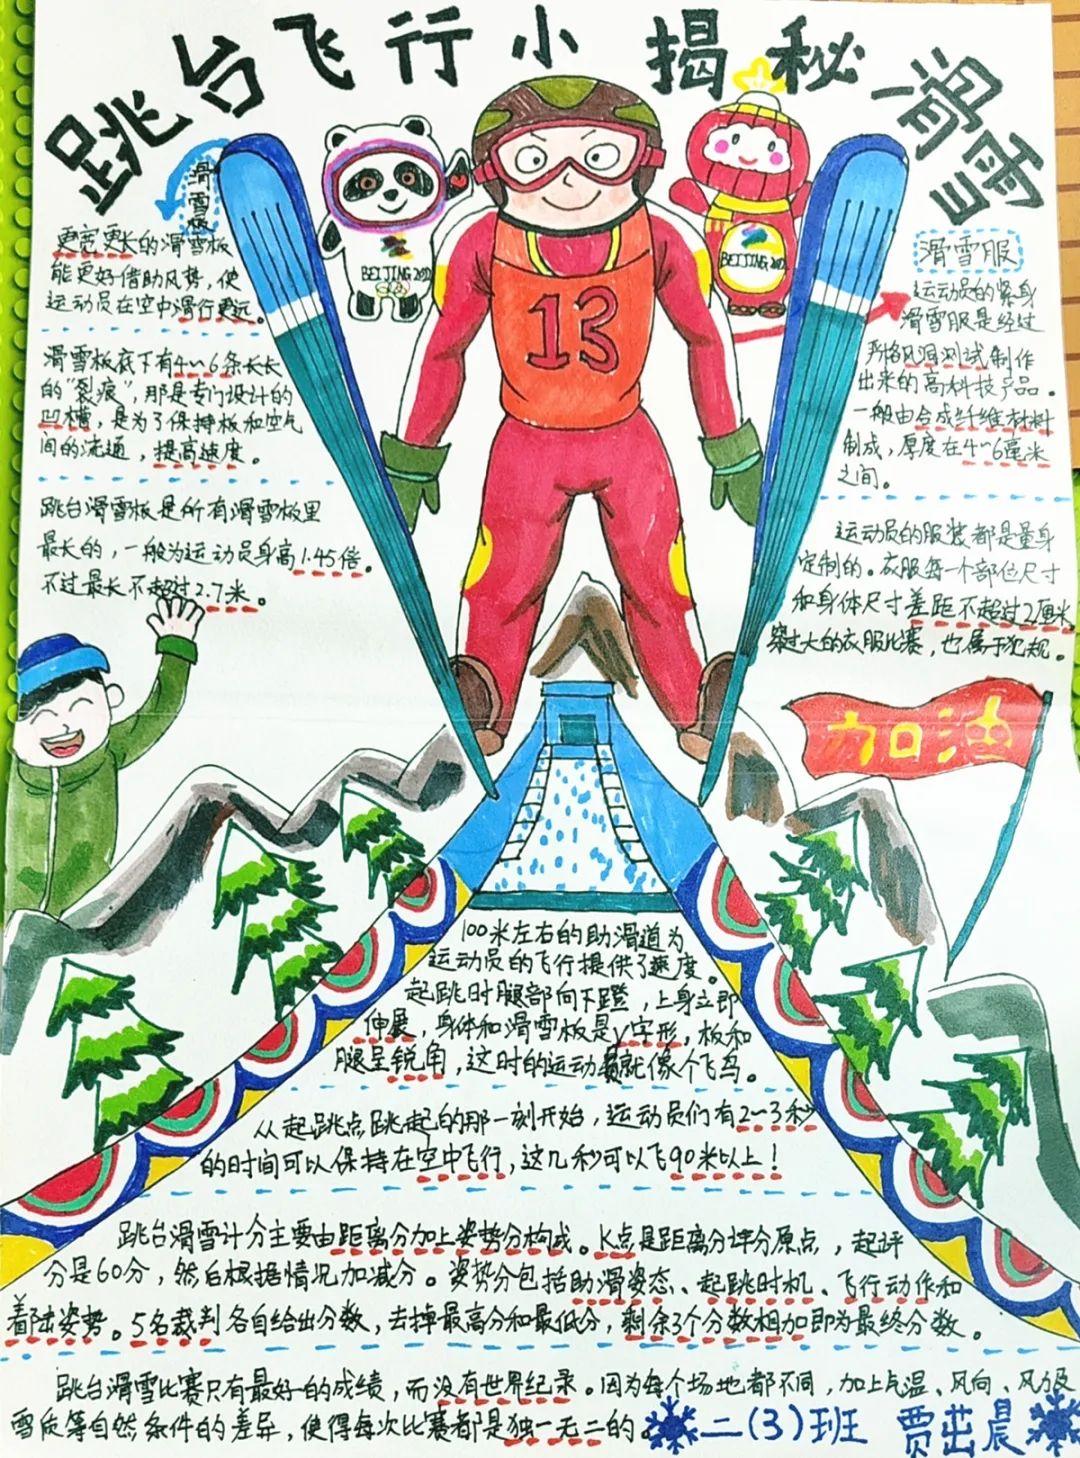 跳台飞行小揭秘滑雪
滑雪板
更宽更长的滑雪板
能更好借助风势，使
运动员在空中滑行更远。
滑雪板底下有4~6条长长
的“裂痕”，那是专门设计的
凹槽，是为了保持板和空气
间的流通，提高速度。
跳台滑雪板是所有滑雪板里
最长的，一般为运动员身高1.45倍。
不过最长不超过2.7米。
BEIJING 202
BEIJING 202
13
滑雪服
运动员的紧身
滑雪服是经过
严格风洞测试制作
出来的高科技产品。
一般由合成纤维材料
制成，厚度在4~6毫米
之间。
运动员的服装都是量身
定制的。衣服每一个部位尺寸
和身体尺寸差距不超过2厘米
穿过大的衣服比赛，也属于犯规。
加油
100米左右的助滑道为
运动员的飞行提供了速度。
起跳时腿部向下蹬，上身立即
伸展，身体和滑雪板是y字形，板和
腿呈锐角，这时的运动员就像个飞鸟。
从起跳点跳起的那一刻开始，运动员们有2~3秒
的时间可以保持在空中飞行，这几秒可以飞90米以上！
跳台滑雪计分主要由距离分加上姿势分构成。K点是距离分评分原点，起评
分是60分，然后根据情况加减分。姿势分包括助滑姿态、起跳时机、飞行动作和
着陆姿势。5名裁判各自给出分数，去掉最高分和最低分，剩余3个分数相加即为最终分数。
跳台滑雪比赛只有最好的成绩，而没有世界纪录。因为每个场地都不同，加上气温、风向、风力及
雪质等自然条件的差异，使得每次比赛都是独一无二的。
二(3)班 贾茁晨